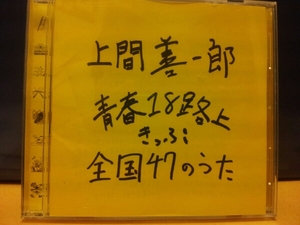 上間善一郎
青春18路上
きっぷ
全国47のうた